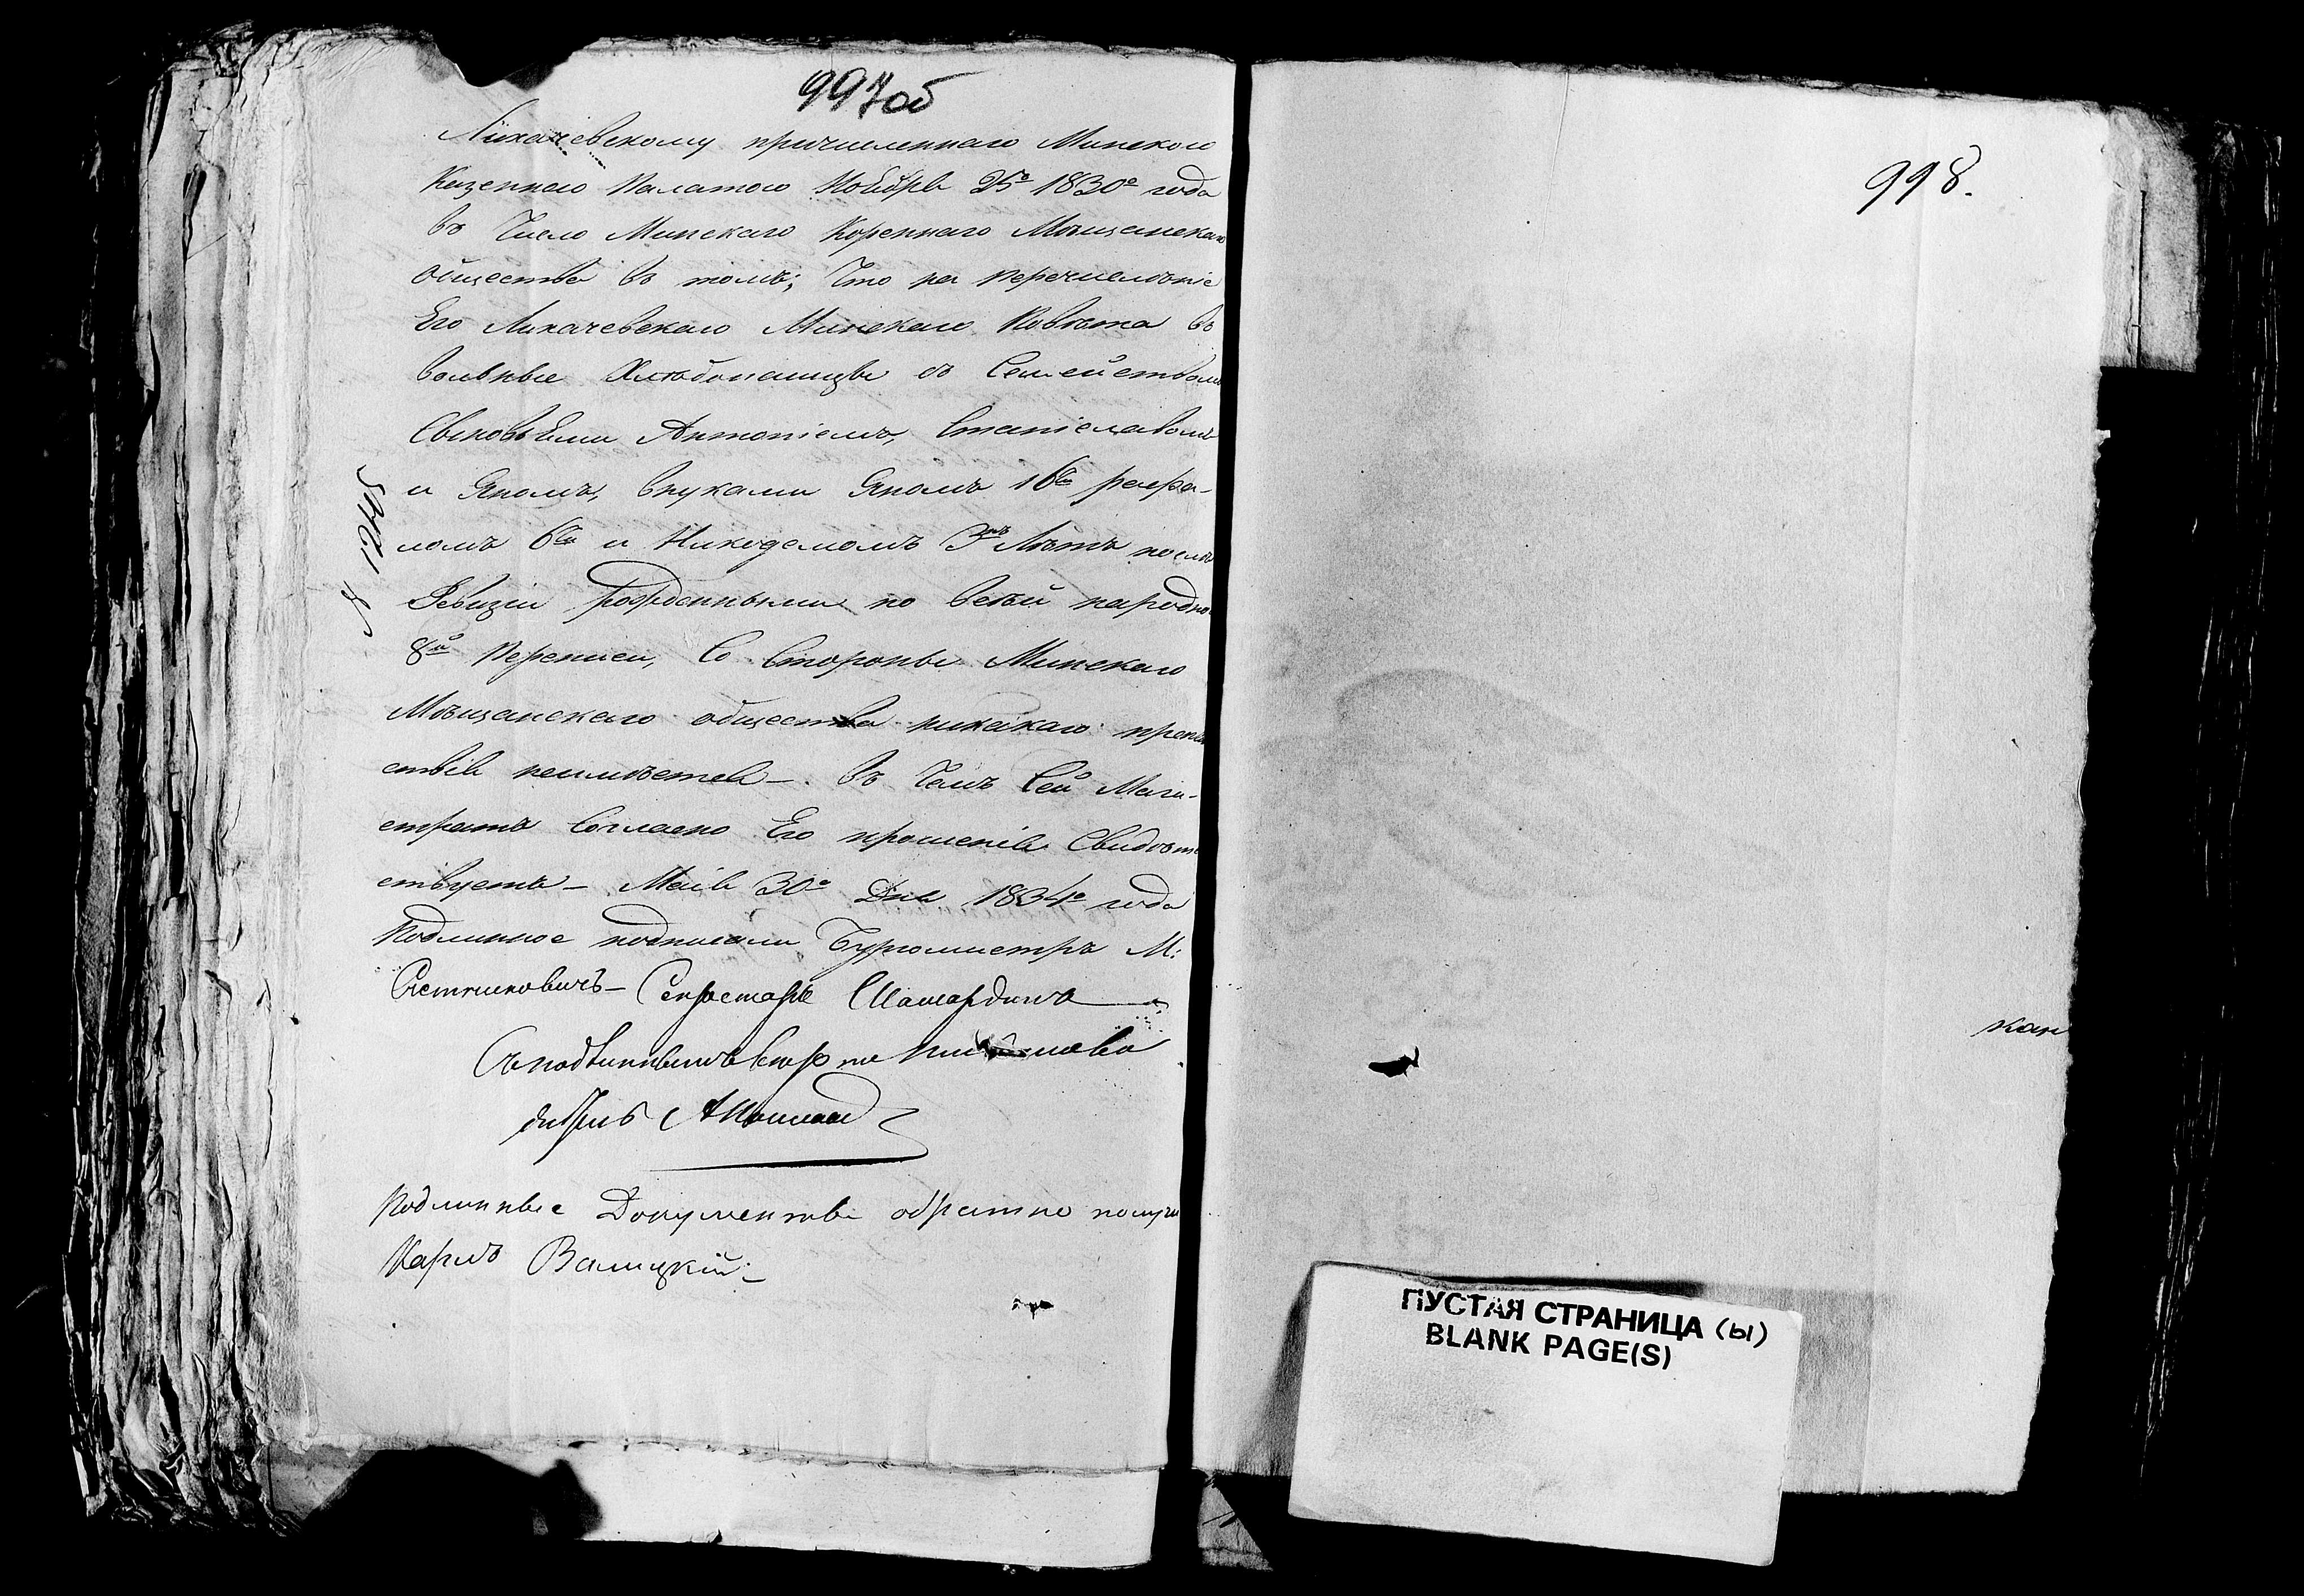 997об
Лихачевскому причисленнаго Минскою
Казенною Палатою Ноября 25го 1830го года
въ Число Минскаго Кореннаго Мѣщанскаго
общества въ томъ; Что на перечисленіе
Его Лихачевскаго Минскаго Повѣта въ
вольные Хлѣбопашцы съ Семействомъ
Сыновьями Антоніемъ, Станиславомъ
и Яномъ, внуками Яномъ 16ти рафа-
ломъ 6ти и Никодемомъ 3хъ Лѣтъ послѣ
Ревизіи рожденными по всей народной
8й Переписи, Со Стороны Минскаго
Мѣщанскаго общества никакаго препят
ствія неимѣется —. въ Чемъ Сей Маги-
стратъ Согласно Его прошенія Свидѣтель
ствуетъ — Маія 30го Дня 1834го года
Подлинное подписали Бургомистръ М:
Секретарь
Съ подлиннымъ
Подлинные Документы обратно получилъ
Карлъ Валицкій
998.
кан
ПУСТАЯ СТРАНИЦА (Ы)
BLANK PAGE(S)